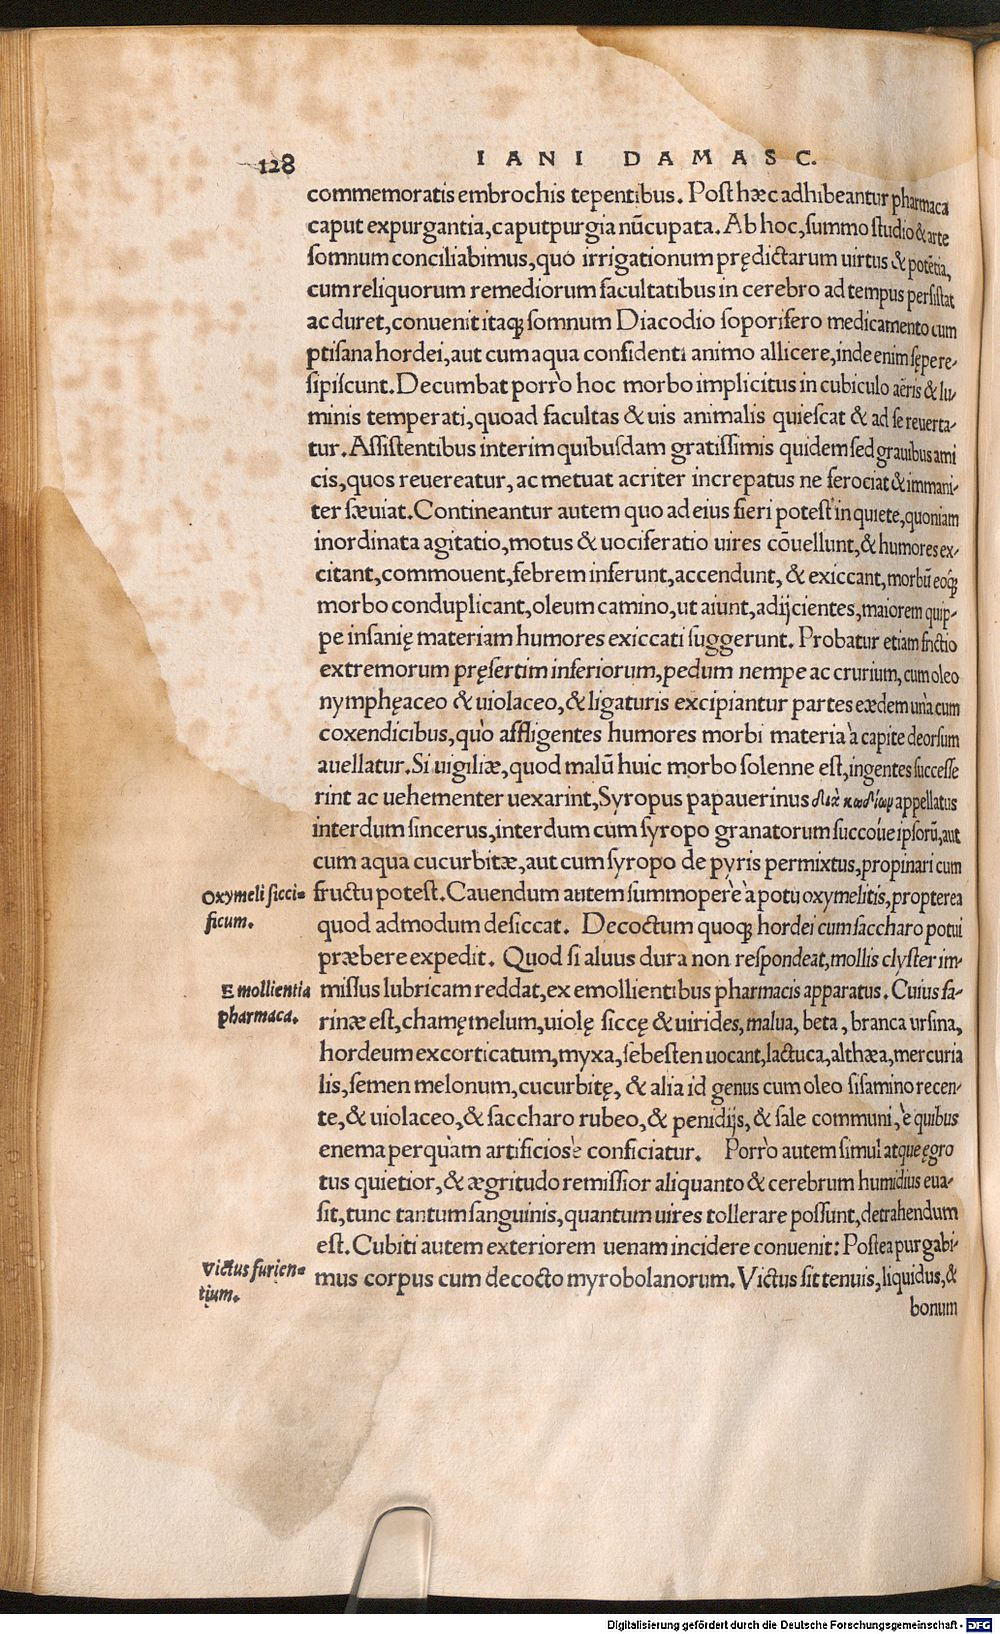 128
IANI DAMASC.
commemoratis embrochis tepentibus. Post hæc adhibeantur pharmaca
caput expurgantia, caputpurgia nũcupata. Ab hoc, summo studio & arte
somnum conciliabimus, quo irrigationum prędictarum uirtus & potẽtia,
cum reliquorum remediorum facultatibus in cerebro ad tempus persistat
ac duret, conuenit itaqꝫ somnum Diacodio soporifero medicamento cum
ptisana hordei, aut cum aqua confidenti animo allicere, inde enim sępe re-
sipiscunt. Decumbat porrò hoc morbo implicitus in cubiculo aëris & lu-
minis temperati, quoad facultas & uis animalis quiescat & ad se reuerta-
tur. Assistentibus interim quibusdam gratissimis quidem sed grauibus ami
cis, quos reuereatur, ac metuat acriter increpatus ne ferociat & immani-
ter sæuiat. Contineantur autem quo ad eius fieri potest in quiete, quoniam
inordinata agitatio, motus & uociferatio uires cõuellunt, & humores ex-
citant, commouent, febrem inferunt, accendunt, & exiccant, morbũ eoqꝫ
morbo conduplicant, oleum camino, ut aiunt, adijcientes, maiorem quip-
pe insanię materiam humores exiccati suggerunt. Probatur etiam frictio
extremorum pręsertim inferiorum, pedum nempe ac crurium, cum oleo
nymphęaceo & uiolaceo, & ligaturis excipiantur partes eædem unà cum
coxendicibus, quò affligentes humores morbi materia à capite deorsum
auellatur. Si uigiliæ, quod malũ huic morbo solenne est, ingentes successe
rint ac uehementer uexarint, Syropus papauerinus διὰ κωδίωμ appellatus
interdum sincerus, interdum cum syropo granatorum succoúe ipsorũ, aut
cum aqua cucurbitæ, aut cum syropo de pyris permixtus, propinari cum
fructu potest. Cauendum autem summoperè à potu oxymelitis, propterea
Oxymeli sicci-
ficum.
quod admodum desiccat. Decoctum quoqꝫ hordei cum saccharo potui
præbere expedit. Quod si aluus dura non respondeat, mollis clyster im-
Emollientia
pharmaca.
missus lubricam reddat, ex emollientibus pharmacis apparatus. Cuius fa-
rinæ est, chamęmelum, uiolę siccę & uirides, malua, beta, branca ursina,
hordeum excorticatum, myxa, sebesten uocant, lactuca, althæa, mercuria
lis, semen melonum, cucurbitę, & alia id genus cum oleo sisamino recen-
te, & uiolaceo, & saccharo rubeo, & penidijs, & sale communi, è quibus
enema perquàm artificiosè conficiatur. Porrò autem simul atque ęgro
tus quietior, & ægritudo remissior aliquanto & cerebrum humidius eua-
sit, tunc tantum sanguinis, quantum uires tollerare possunt, detrahendum
est. Cubiti autem exteriorem uenam incidere conuenit: Postea purgabi-
Victus furien-
tium.
mus corpus cum decocto myrobolanorum. Victus sit tenuis, liquidus, &
bonum
Digitalisierung gefördert durch die Deutsche Forschungsgemeinschaft - DFG